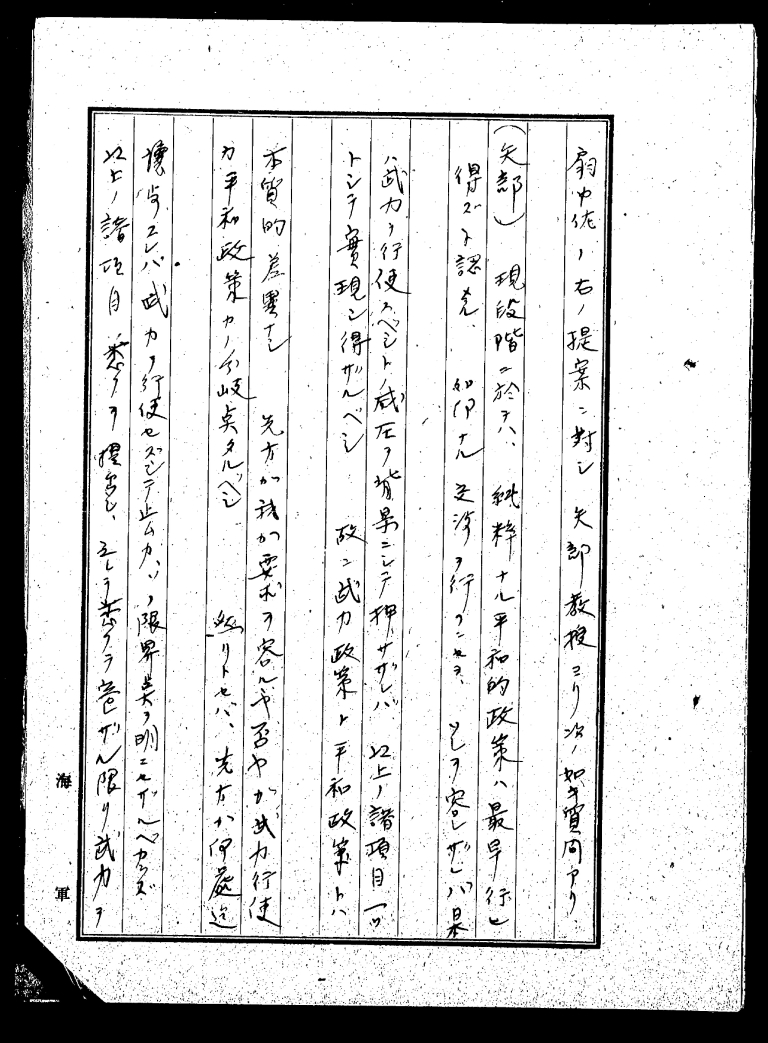 扇中佐ノ右ノ提案ニ對シ矢部教授ヨリ次ノ如キ質問アリ、
(矢部) 現段階ニ於テハ、純粋ナル平和的政策ハ最早行ヒ
得ズト認ム、如何ナル交渉ヲ行フニセヨ、ソレヲ容レザレバ日本
ハ武力ヲ行使スベシトノ威圧ヲ背景ニシテ押サザレバ以上ノ諸項目一ツ
トシテ實現シ得ザルベシ 故ニ武力政策ト平和政策トハ
本質的差異ナシ 先方が我が要求ヲ容ルヤ否ヤが武力行使
カ平和政策カノ分岐点タルベシ 然リトセバ、先方が何處迄
譲歩スレバ武力ヲ行使セズシテ止ムカ、ソノ限界点ヲ明ニセザルベカラズ
以上ノ諸項目ノ悉クヲ提出シ、之レヲ悉ク容レザル限リ武力ヲ
海軍